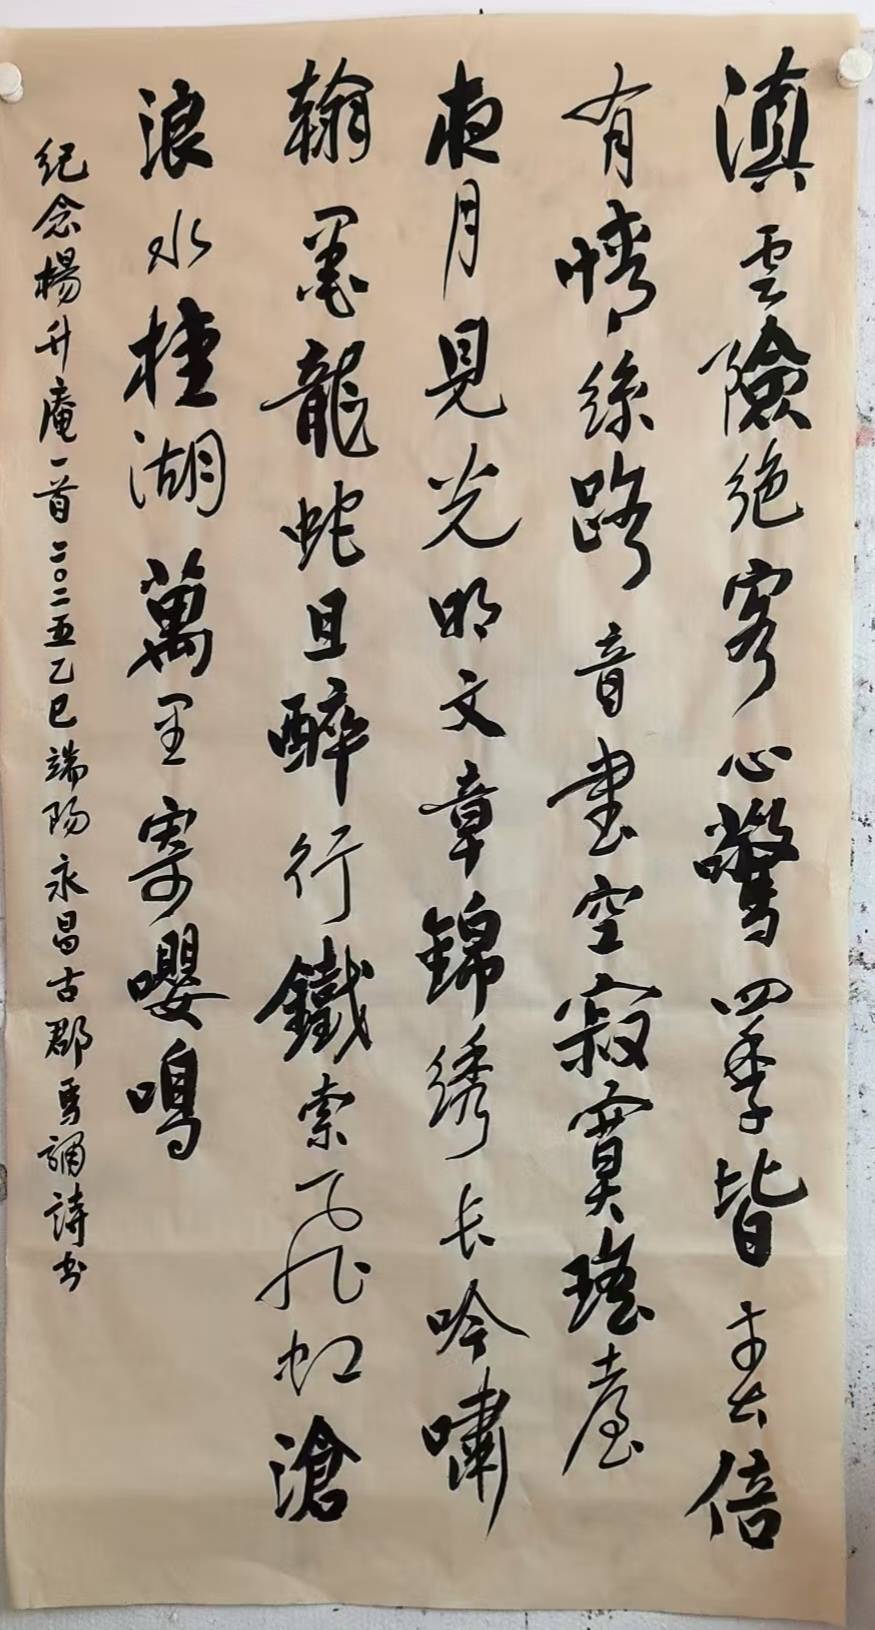 滇雲險絕客心驚四季皆春倍
有情絲路音書空寂寞瑤臺
夜月見光明文章錦绣长吟嘯
翰墨龍蛇且醉行鐵索飛虹滄
浪水桂湖萬里寄嚶鳴
纪念楊升庵一首二〇二五乙巳端阳永昌古郡馬誦詩书